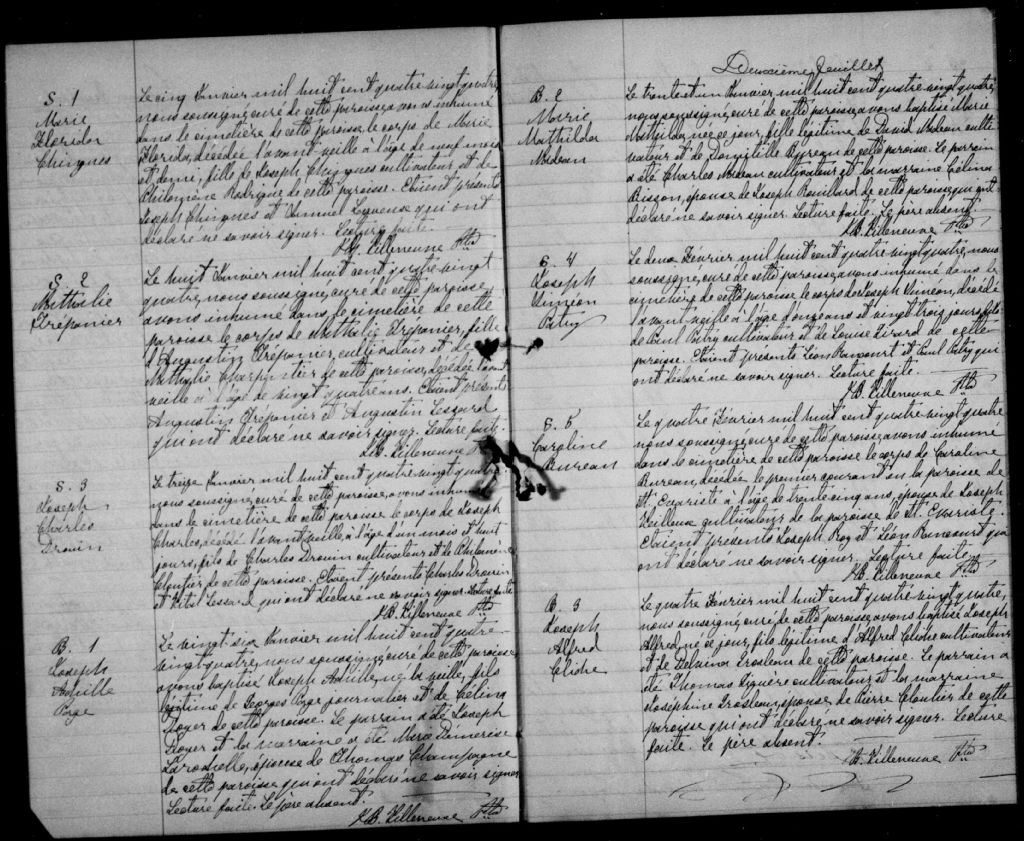 S. 1
Marie
Florida
Chingnes
Le cinq Janvier mil huit cent quatre vingt quatre,
nous soussigné, curé de cette paroisse, avons inhumé
dans le cimetière de cette paroisse le corps de Marie
Florida, décédée l'avant veille à l'âge de neuf mois
et demi, fille de Joseph Chingnes cultivateur et de
Philomène Rodrigue de cette paroisse. Etaient présents
Joseph Chingnes et qui ont
déclaré ne savoir signer. Lecture faite.
J.B. Villeneuve Ptre
S. 2
Mathalie
Trépanier
Le huit Janvier mil huit cent quatre vingt
quatre, nous soussigné, curé de cette paroisse
avons inhumé dans le cimetière de cette
paroisse le corps de Mathalie Trépanier, fille
d'Augustin Trépanier, cultivateur et de
Mathalie Charpentier de cette paroisse, décédée l'avant
veille à l'âge de vingt quatre ans. Etaient présents
Augustin Trépanier et Augustin Lessard
qui ont déclaré ne savoir signer. Lecture faite.
J.B. Villeneuve Ptre
S. 3
Joseph
Charles
Drouin
Le treize Janvier mil huit cent quatre vingt quatre,
nous soussigné, curé de cette paroisse, avons inhumé
dans le cimetière de cette paroisse le corps de Joseph
Charles, décédé l'avant veille, à l'âge d'un mois et huit
jours, fils de Charles Drouin cultivateur et de Philomène
Cloutier de cette paroisse. Etaient présents Charles Drouin
et Vital Lessard qui ont déclaré ne savoir signer. Lecture faite
J.B. Villeneuve Ptre
B. 1
Joseph
Achille
Page
Le vingt six Janvier mil huit cent quatre-
vingt quatre, nous soussigné curé de cette paroisse,
avons baptisé Joseph Achille, né la veille, fils
légitime de Georges Page journalier et de Célina
Royer de cette paroisse. Le parrain a été Joseph
Royer et la marraine a été
Larochelle, épouse de Thomas Champagne
de cette paroisse qui ont déclaré ne savoir signer
Lecture faite. Le père absent.
J.B. Villeneuve Ptre
Deuxième feuillet
B. 2
Marie
Mathilda
Le trente et un Janvier mil huit cent quatre vingt quatre,
nous soussigné, curé de cette paroisse, avons baptisé Marie
Mathilda, née ce jour, fille légitime de David culti-
vateur et de Domitille de cette paroisse. Le parrain
a été Charles cultivateur et la marraine Célina
Bisson, épouse de Joseph Rouillard de cette paroisse qui ont
déclaré ne savoir signer. Lecture faite. Le père absent.
J.B. Villeneuve Ptre
S. 4
Joseph
Siméon
Patry
Le deux Février mil huit cent quatre vingt quatre, nous
soussigné, curé de cette paroisse, avons inhumé dans le
cimetière de cette paroisse le corps de Joseph Siméon, décédé
l'avant veille à l'âge d'onze ans et vingt trois jours, fils
de Paul Patry cultivateur et de Louise Girard de cette
paroisse. Etaient présents Léon Rancourt et Paul Patry qui
ont déclaré ne savoir signer. Lecture faite.
J.B. Villeneuve Ptre
S. 5
Caroline
Bureau
Le quatre Février mil huit cent quatre vingt quatre
nous soussigné, curé de cette paroisse, avons inhumé
dans le cimetière de cette paroisse le corps de Caroline
Bureau, décédée le premier courant en la paroisse de
St. Evariste à l'âge de trente cinq ans, épouse de Joseph
Veilleux cultivateur de la paroisse de St. Evariste.
Etaient présents Joseph Roy et Léon Rancourt qui
ont déclaré ne savoir signer. Lecture faite.
J.B. Villeneuve Ptre
B. 3
Joseph
Alfred
Cliche
Le quatre Février mil huit cent quatre vingt quatre,
nous soussigné, curé de cette paroisse, avons baptisé Joseph
Alfred, né ce jour, fils légitime d'Alfred Cliche cultivateur
et de Delvina Grosleau de cette paroisse. Le parrain a
été Thomas Giguère cultivateur et la marraine
Josephine Grosleau, épouse de Pierre Cloutier de cette
paroisse qui ont déclaré ne savoir signer. Lecture
faite. Le père absent.
J.B. Villeneuve Ptre